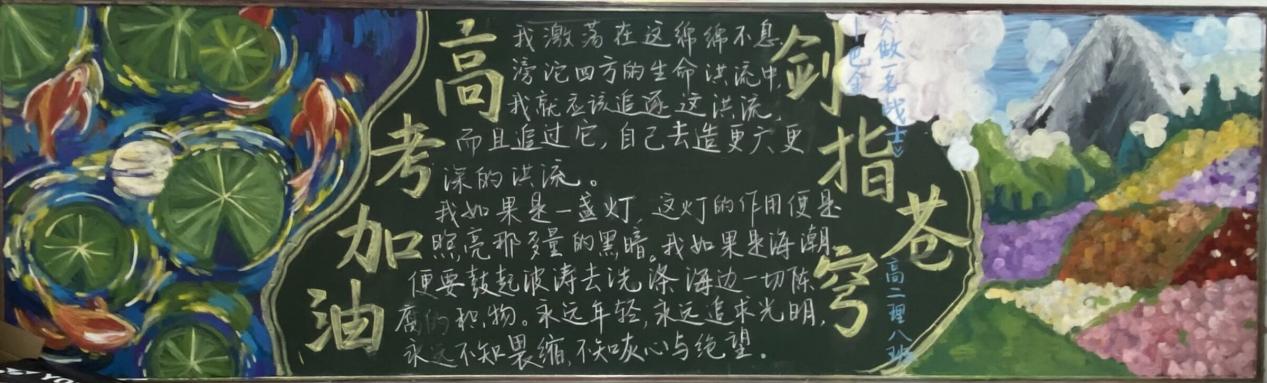 高考加油
我激荡在这绵绵不息
滂沱四方的生命洪流中,
我就应该追逐这洪流,
而且追过它,自己去造更广更
深的洪流。
我如果是一盏灯,这灯的作用便是
照亮那多量的黑暗。我如果是海潮
便要鼓起波涛去洗涤海边一切陈
腐的积物。永远年轻,永远追求光明,
永远不知畏缩,不知灰心与绝望。
剑指苍穹
做一名战士
巴金
高二理八班